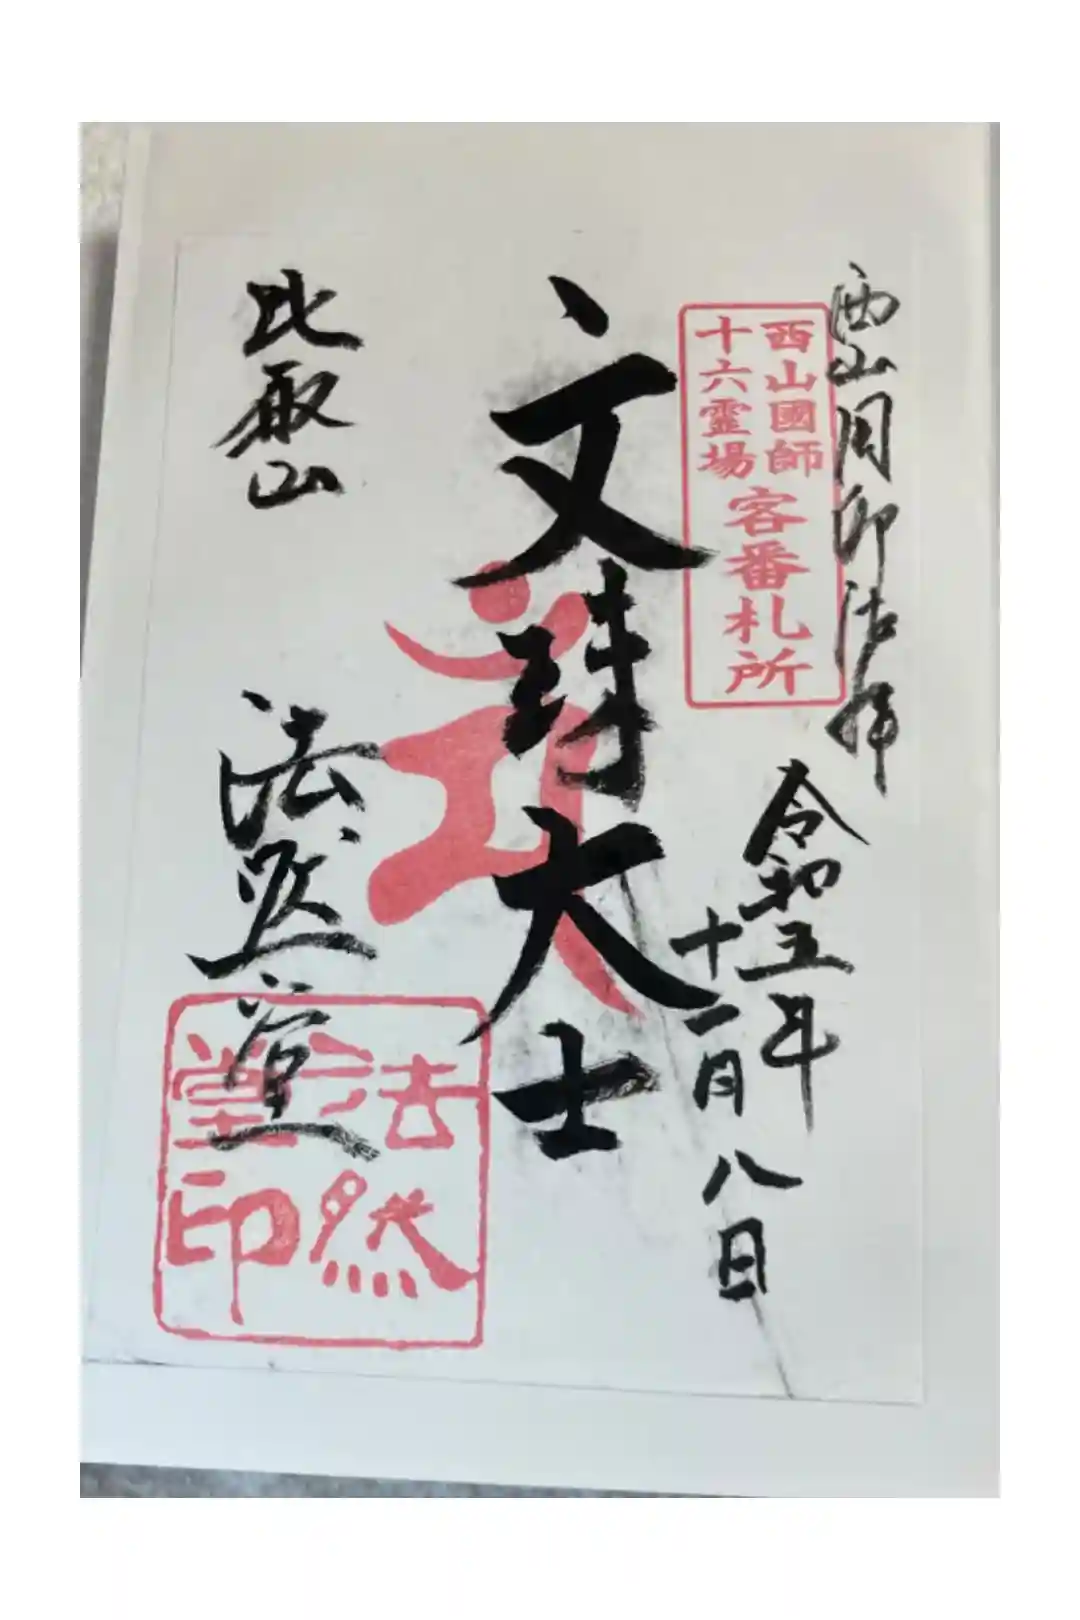 西山国師法拝
西山國師
十六霊場
客番札所
令和五年
十一月八日
文珠大士
比叡山
法然堂
法然
堂印